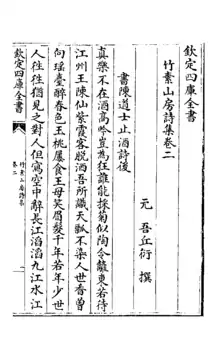 欽定四庫全書
竹素山房詩集卷二
元 吾丘衍 撰
書陳道士止酒詩後
真樂不在酒高吟豈為狂誰能採菊似陶令籬東若待
江州王陳仙紫霞客脫酒吾所識天瓢不染人世香曾
向瑶臺醉春色玉桃屢食王母笑眉髮千年若年少世
人往往猶見之對人但寫空中辭長江滔滔九江水江
欽定四庫全書
竹素山房詩集
卷二
一